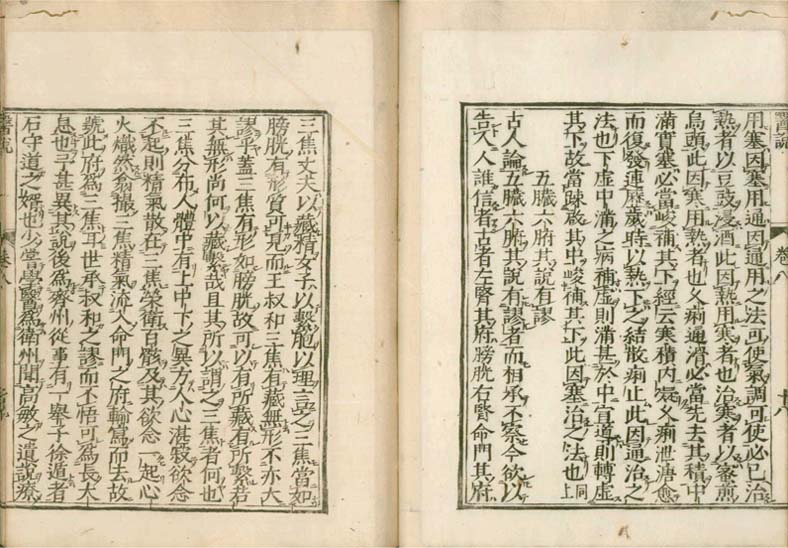 醫說
卷八
十八
用塞因塞用通因通用之法可使氣調可使必已治
熱者以豆豉浸酒此因熱用寒者也治寒者以蜜煎
烏頭此因寒用熱者也又痢通滑必當先去其積中
滿實塞必當峻補其下經云寒積內凝又痢泄溏愈
而復發連歷歲時以熱下之結散痢止此因通治之
法也下虛中滿之病補虛則滿甚於中宣道則轉虛
其下故當疎啟其中峻補其下此因塞治之法也同上
五臟六腑其說有謬
古人論五臟六腑其說有謬者而相承不察今欲以
告人人誰信者古者左腎其府膀胱右腎命門其府
三焦丈夫以藏精女子以繫胞以理言之三焦當如
膀胱有形質可見而王叔和三焦有藏無形不亦大
謬乎蓋三焦有形如膀胱故可以有所藏有所繫若
其無形尚何以藏繫哉且其所以謂之三焦者何也
三焦分布人體中有上中下之異方人心湛寂欲念
不起則精氣散在三焦榮衛百骸及其欲念一起心
火熾然翕撮三焦精氣流入命門之府輸寫而去故
號此府爲三焦耳世承叔和之謬而不悟可爲長太
息也予甚異其說後爲齊州從事有一舉子徐遁者
石守道之婿也少嘗學醫爲衛州聞高敏之遺說療
醫說
卷八